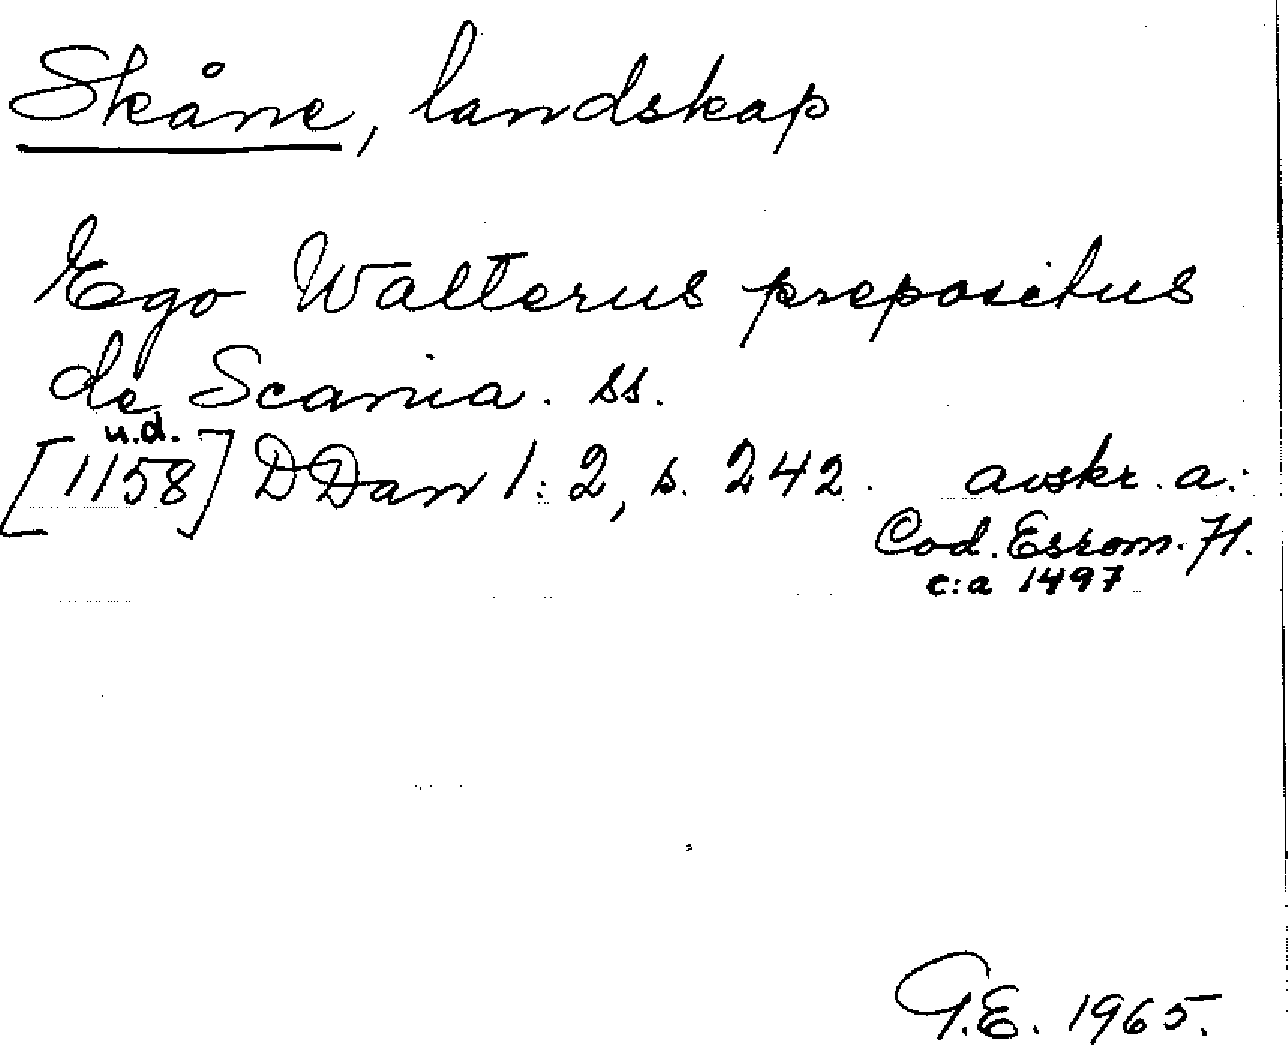 Skåne, landskap
Ego Walterus prepositus
de Scania. ss.
u.d.
[1158] DDan 1:2, s. 242. avskr. a:
Cod. Esrom. 71.
c:a 1497
G.E. 1965.